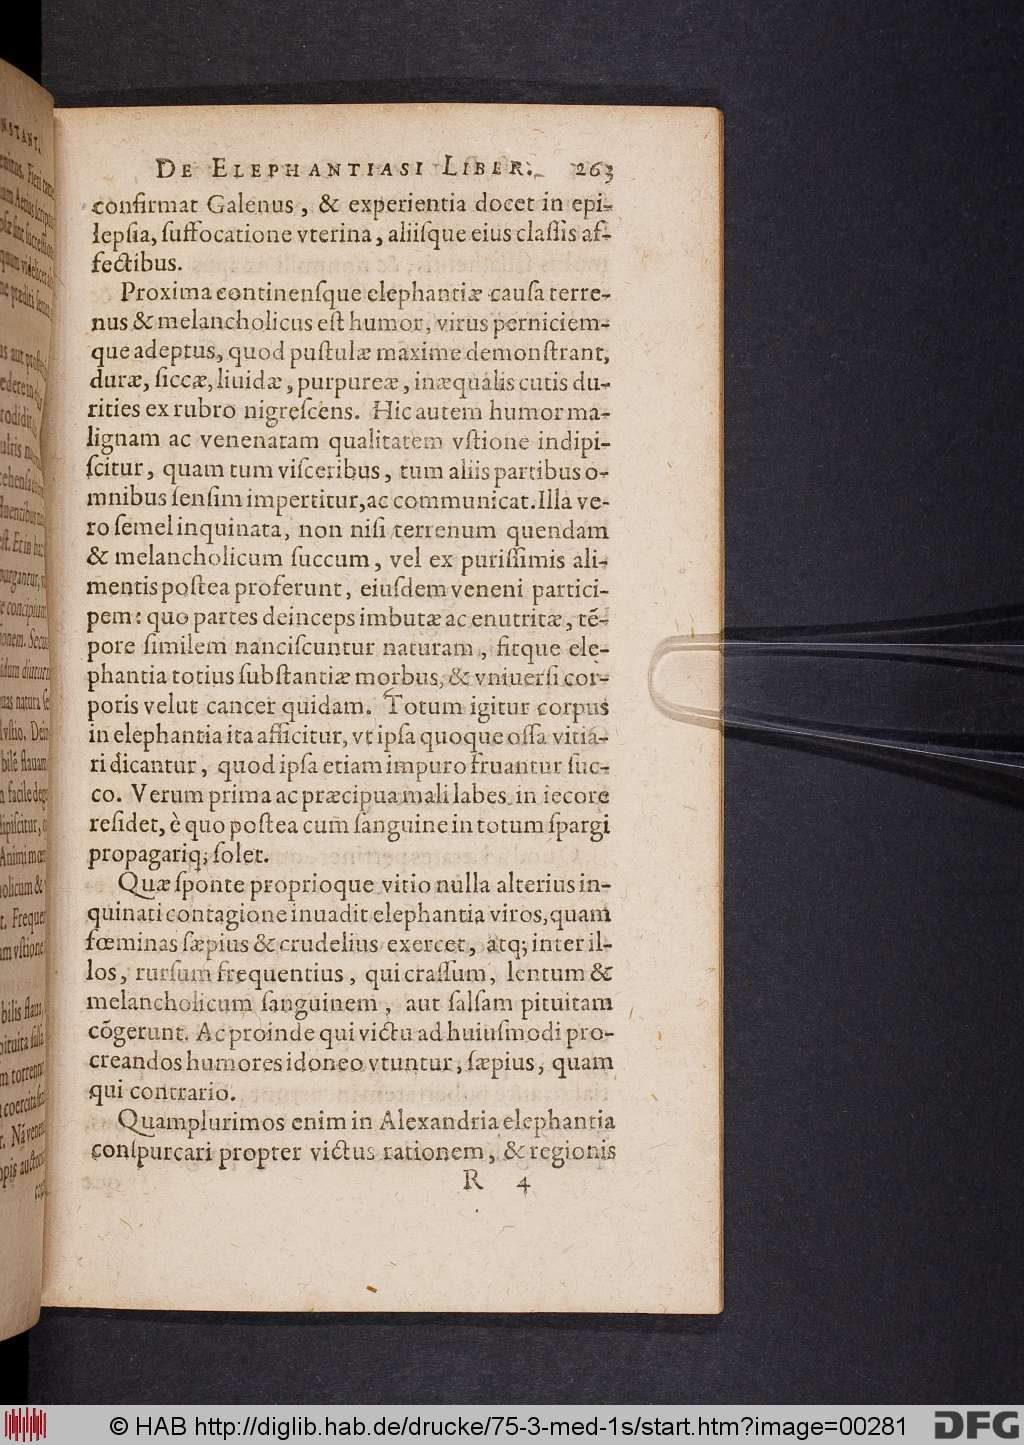 DE ELEPHANTIASI LIBER. 263
confirmat Galenus, & experientia docet in epi-
lepſia, ſuffocatione vterina, aliiſque eius claſſis af-
fectibus.
Proxima continenſque elephantiæ cauſa terre-
nus & melancholicus eſt humor, virus perniciem-
que adeptus, quod puſtulæ maxime demonſtrant,
duræ, ſiccæ, liuidæ, purpureæ, inæqualis cutis du-
rities ex rubro nigreſcens. Hic autem humor ma-
lignam ac venenatam qualitatem vſtione indipi-
ſcitur, quam tum viſceribus, tum aliis partibus o-
mnibus ſenſim impertitur, ac communicat. Illa ve-
ro ſemel inquinata, non niſi terrenum quendam
& melancholicum ſuccum, vel ex puriſſimis ali-
mentis poſtea proferunt, eiuſdem veneni partici-
pem: quo partes deinceps imbutæ ac enutritæ, tē-
pore ſimilem nanciſcuntur naturam, fitque ele-
phantia totius ſubſtantiæ morbus, & vniuerſi cor-
poris velut cancer quidam. Totum igitur corpus
in elephantia ita afficitur, vt ipſa quoque oſſa vitia-
ri dicantur, quod ipſa etiam impuro fruantur ſuc-
co. Verum prima ac præcipua mali labes in iecore
reſidet, è quo poſtea cum ſanguine in totum ſpargi
propagariq; ſolet.
Quæ ſponte proprioque vitio nulla alterius in-
quinati contagione inuadit elephantia viros, quam
fœminas ſæpius & crudelius exercet, atq; inter il-
los, rurſum frequentius, qui craſſum, lentum &
melancholicum ſanguinem, aut ſalſam pituitam
cōgerunt. Ac proinde qui victu ad huiuſmodi pro-
creandos humores idoneo vtuntur, ſæpius, quam
qui contrario.
Quamplurimos enim in Alexandria elephantia
conſpurcari propter victus rationem, & regionis
R 4
© HAB http://diglib.hab.de/drucke/75-3-med-1s/start.htm?image=00281
DFG